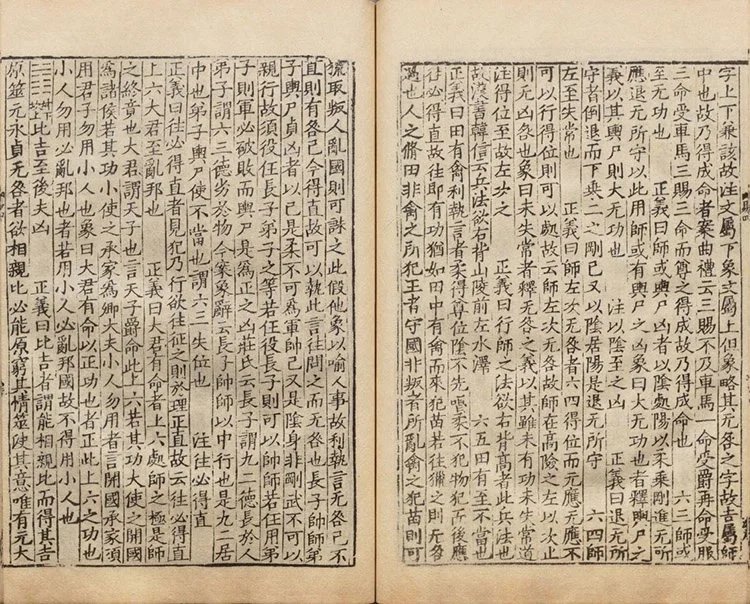 字上下兼該故注文屬下象文屬上但象略其无咎之字故吉屬師
中也故乃得成命者案曲禮云三賜不及車馬一命受爵再命受服
三命受車馬三賜三命而尊之得成故乃得成命也　六三師或
至无功也　正義曰師或輿尸凶者以陰處陽以柔乘剛進无所
應退无所守以此用師或有輿尸之凶象曰大无功也者釋輿尸之
義以其輿尸則大无功也　注以陰至之凶　正義曰退无所
守者倒退而下乘二之剛已又以陰居陽是退无所守　六四師
左至失常也　正義曰師左次无咎者六四得位而无應无應不
可以行得位則可以處故云師左次无咎故師在高險之左以次止
則无凶咎也象曰未失常者釋无咎之義以其雖未有功未失常道
注得位至故左次之　正義曰行師之法欲右背高者此兵法也
故漢書韓信云兵法欲右背山陵前左水澤　六五田有至不當也
正義曰田有禽利執言者柔得尊位陰不先唱柔不犯物犯而後應
往必得直故往即有功猶如田中有禽而來犯苗若往獵之則无咎
過也人之脩田非禽之所犯王者守國非叛者所亂禽之犯苗則可
獵取叛人亂國則可誅之此假他象以喻人事故利執言无咎己不
直則有咎己今得直故可以執此言往問之而无咎也長子帥師弟
子輿尸貞凶者以己是柔不可為軍帥己又是陰身非剛武不可以
親行故須役任長子弟子之等若任役長子則可以帥師若任用弟
子則軍必破敗而輿尸是為正之凶莊氏云長子謂九二德長於人
弟子謂六三德劣於物今案象辭云長子帥師以中行也是九二居
中也弟子輿尸使不當也謂六三失位也　注往必得直
正義曰往必得直者見犯乃行欲往征之則於理正直故云往必得直
上六大君至亂邦也　正義曰大君有命者上六處師之極是師
之終竟也大君謂天子也言天子爵命此上六若其功大使之開國
為諸侯若其功小使之承家為卿大夫小人勿用者言開國承家須
用君子勿用小人也象曰大君有命以正功也者正此上六之功也
小人勿用必亂邦也者若用小人必亂邦國故不得用小人也
䷇坤下坎上比吉至後夫凶　正義曰比吉者謂能相親比而得其吉
原筮元永貞无咎者欲相親比必能原窮其情筮決其意唯有元大